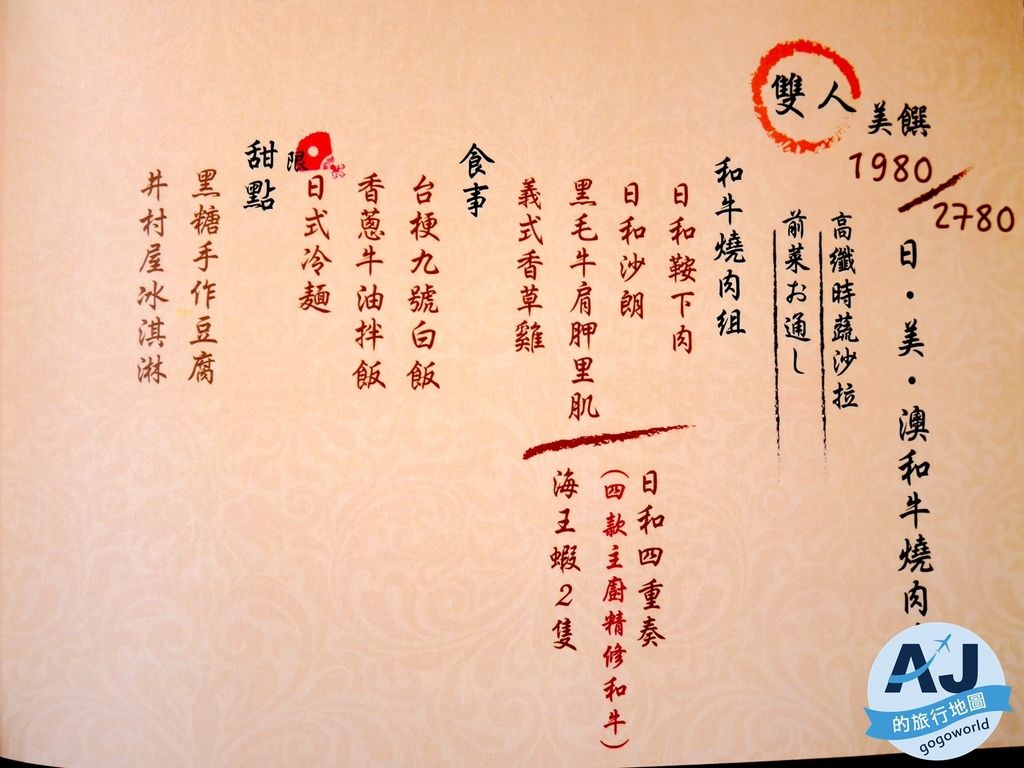 雙人美饌
1980/2780
日・美・澳和牛燒肉
高纖時蔬沙拉
前菜お通し
和牛燒肉組
日和鞍下肉
日和沙朗
黑毛牛肩胛里肌
義式香草雞
日和四重奏
(四款主廚精修和牛)
海王蝦2隻
食事
台梗九號白飯
香蔥牛油拌飯
限
日式冷麵
甜點
黑糖手作豆腐
井村屋冰淇淋
AJ
的旅行地圖
gogoworld